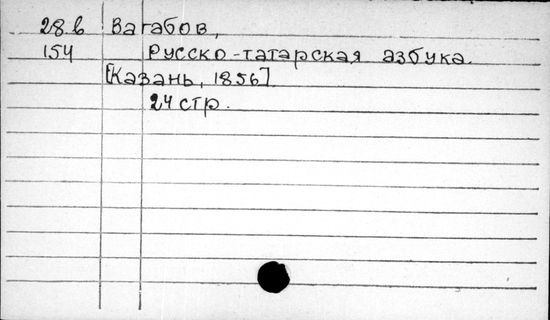 28.b Вагабов,
154 Русско-татарская азбука.
[Казань, 1856]
24 стр.